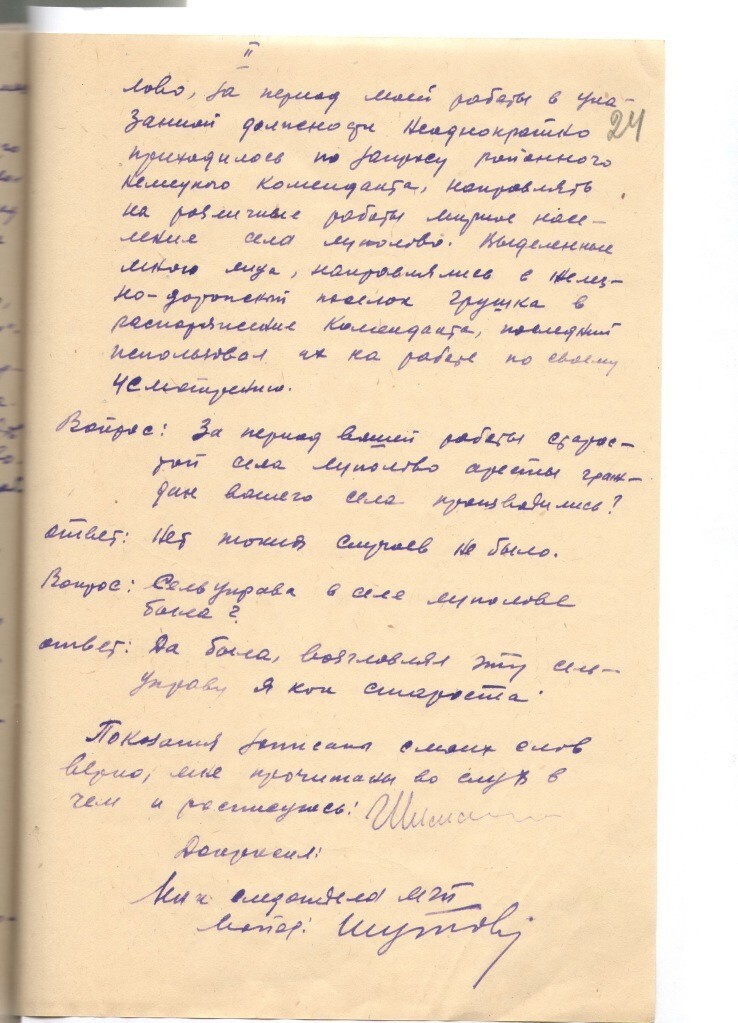 II
24
лово, за период моей работы в ука-
занной должности неоднократно
приходилось по запросу районного
немецкого коменданта, направлять
на различные работы мирное насе-
ление села Муполово. Выделенные
мною лица, направлялись в желез-
но-дорожный поселок Грушка в
распоряжение коменданта, последний
использовал их на работе по своему
усмотрению.
Вопрос: За период вашей работы старос-
той села аресты граж-
дан вашего села производились?
ответ: Нет таких случаев не было.
Вопрос: Сельуправа в селе Муполове
была?
ответ: Да была, возглавлял эту сель-
управу я как староста.
Показания записаны с моих слов
верно, мне прочитаны во слух в
чем и распишусь:
Допросил:
следотдела